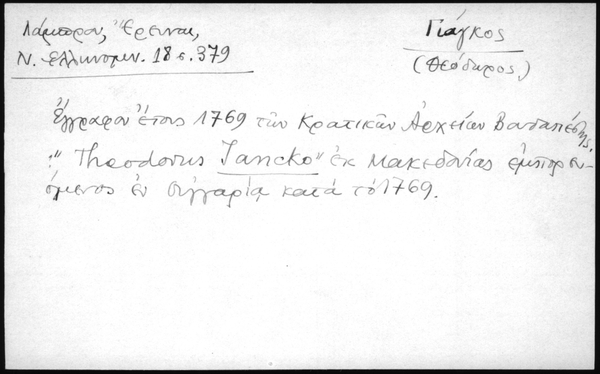 Λάμπρου, Ἔρευναι,
Ν. Ἑλληνομν. 18 σ. 379
Γιάγκος
(Θεόδωρος)
Ἔγγραφον ἔτους 1769 τῶν Κρατικῶν Ἀρχείων Βουδαπέστης.
"Theodorus Jancko" ἐκ Μακεδονίας ἐμπορευ-
όμενος ἐν Οὑγγαρίᾳ κατὰ τὸ 1769.